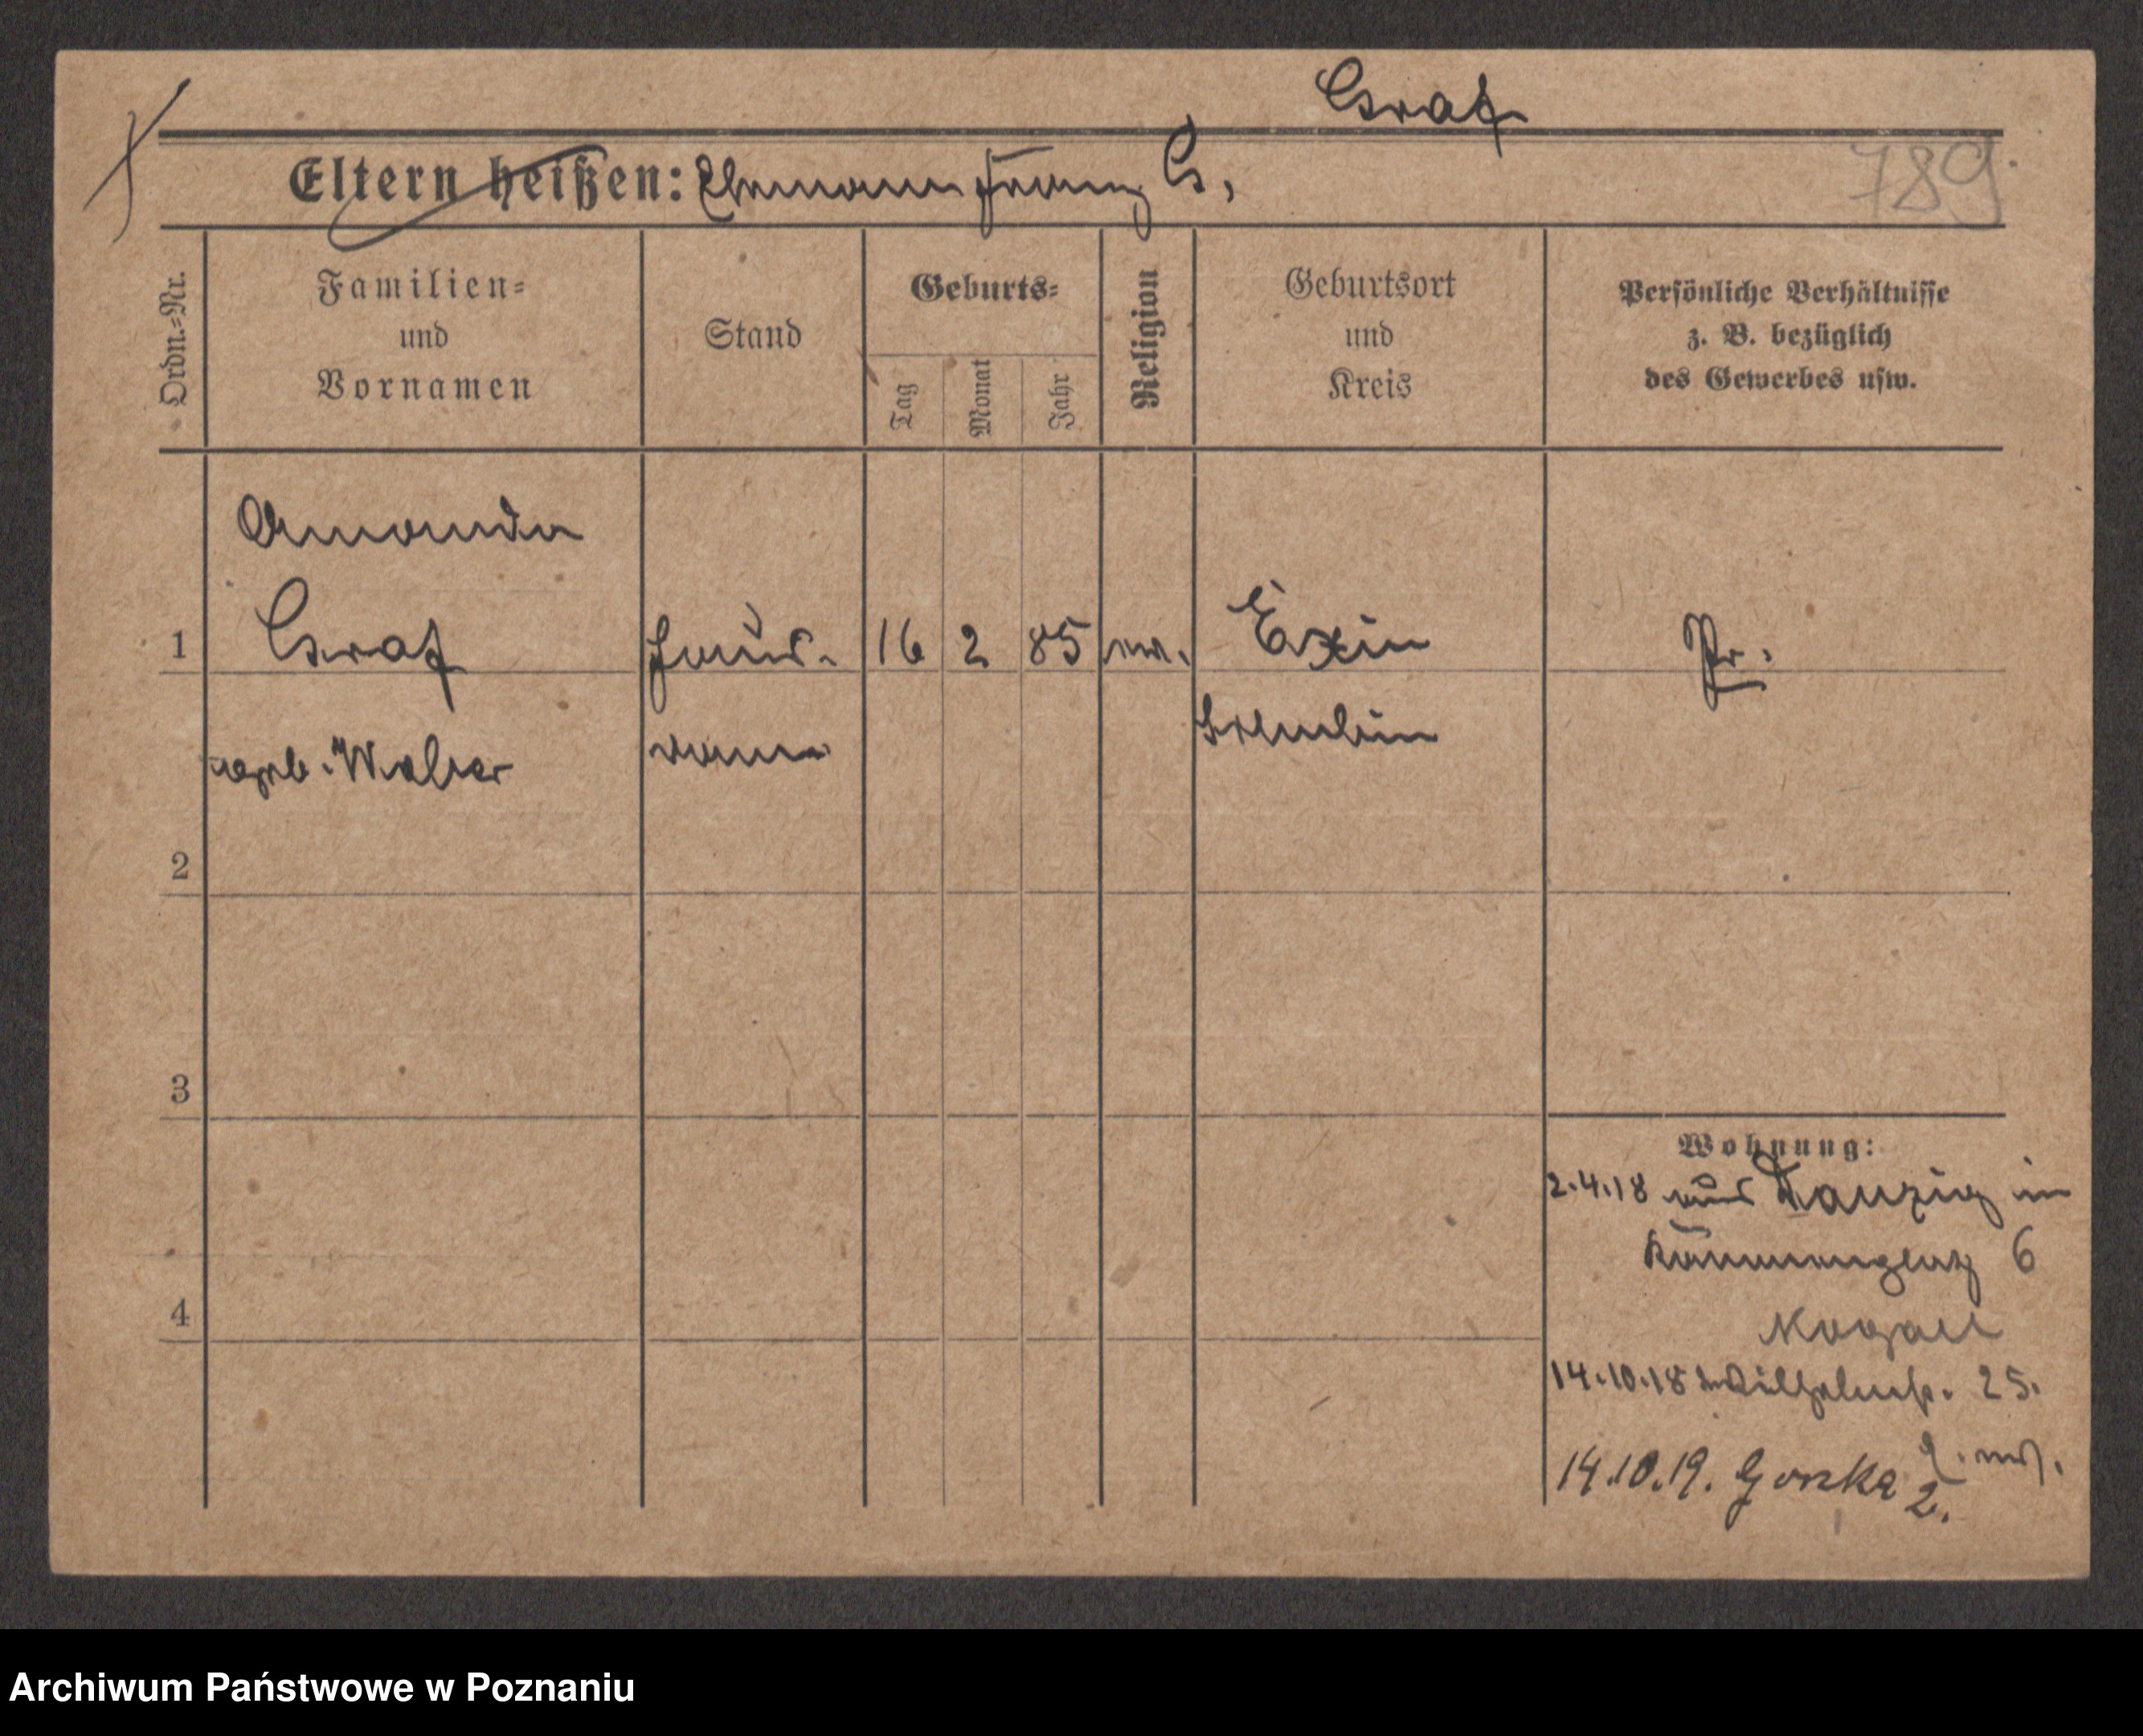 Graf
Eltern heißen: Ehemann Franz G.
789
Ordn.=Nr.
Familien=
und
Vornamen
Stand
Geburts=
Tag
Monat
Jahr
Religion
Geburtsort
und
Kreis
Persönliche Verhältnisse
z. B. bezüglich
des Gewerbes usw.
Amanda
1 Graf Haus- 16 2 85 ev. Exin Pr.
geb. Malzer frau Schubin
2
3
4
Wohnung:
2.4.18 aus Danzig in
Kämmereiplatz 6
14.10.18 Wilhelmstr. 25.
14.10.19. Gorzka 2.
Archiwum Państwowe w Poznaniu